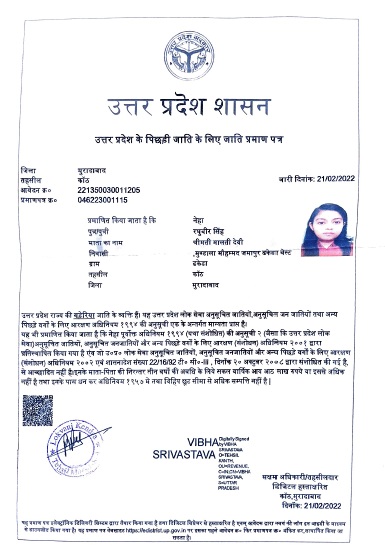 उत्तर प्रदेश शासन
उत्तर प्रदेश के पिछड़ी जाति के लिए जाति प्रमाण पत्र
जिला मुरादाबाद
तहसील काँठ जारी दिनांक: 21/02/2022
आवेदन क्र० 221350030011205
प्रमाणपत्र क्र० 046223001115
प्रमाणित किया जाता है कि नेहा
पुत्र/पुत्री रघुवीर सिंह
माता का नाम श्रीमती मालती देवी
निवासी मौहम्मद जमापुर ढकेवा वेस्ट
ग्राम
तहसील काँठ
जिला मुरादाबाद
उत्तर प्रदेश राज्य की जाति के व्यक्ति हैं। यह उत्तर प्रदेश लोक सेवा अनुसूचित जातियों,अनुसूचित जन जातियों तथा अन्य
पिछड़े वर्गों के लिए आरक्षण अधिनियम १९९४ की अनुसूची एक के अन्तर्गत मान्यता प्राप्त है।
यह भी प्रमाणित किया जाता है कि नेहा पूर्वोक्त अधिनियम १९९४ (यथा संशोधित) की अनुसूची २ (जैसा कि उत्तर प्रदेश लोक
सेवा)अनुसूचित जातियों, अनुसूचित जनजातियों और अन्य पिछड़े वर्गों के लिए आरक्षण (संशोधन) अधिनियम २००१ द्वारा
प्रतिस्थापित किया गया है एंव जो उ०प्र० लोक सेवा अनुसूचित जातियों, अनुसूचित जनजातियों और अन्य पिछड़े वर्गों के लिए आरक्षण
(संशोधन) अधिनियम २००२ एवं शासनादेश संख्या 22/16/92 टी० सी०-III , दिनांक २० अक्टूबर २००८ द्वारा संशोधित की गई है,
से आच्छादित नहीं है।इनके माता-पिता की निरन्तर तीन वर्षो की अवधि के लिये सकल वार्षिक आय आठ लाख रुपये या इससे अधिक
नहीं है तथा इनके पास धन कर अधिनियम १९५७ मे यथा विहित छूट सीमा से अधिक सम्पत्ति नहीं है।
VIBHA SRIVASTAVA
Digitally Signed
by VIBHA
SRIVASTAVA
सक्षम अधिकारी/तहसीलदार
डिजिटल हस्ताक्षरित
काँठ,मुरादाबाद
दिनांक: 21/02/2022